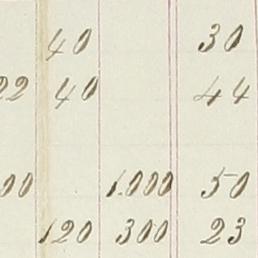 40 30
22 40 44
00 1.000 50
120 300 23